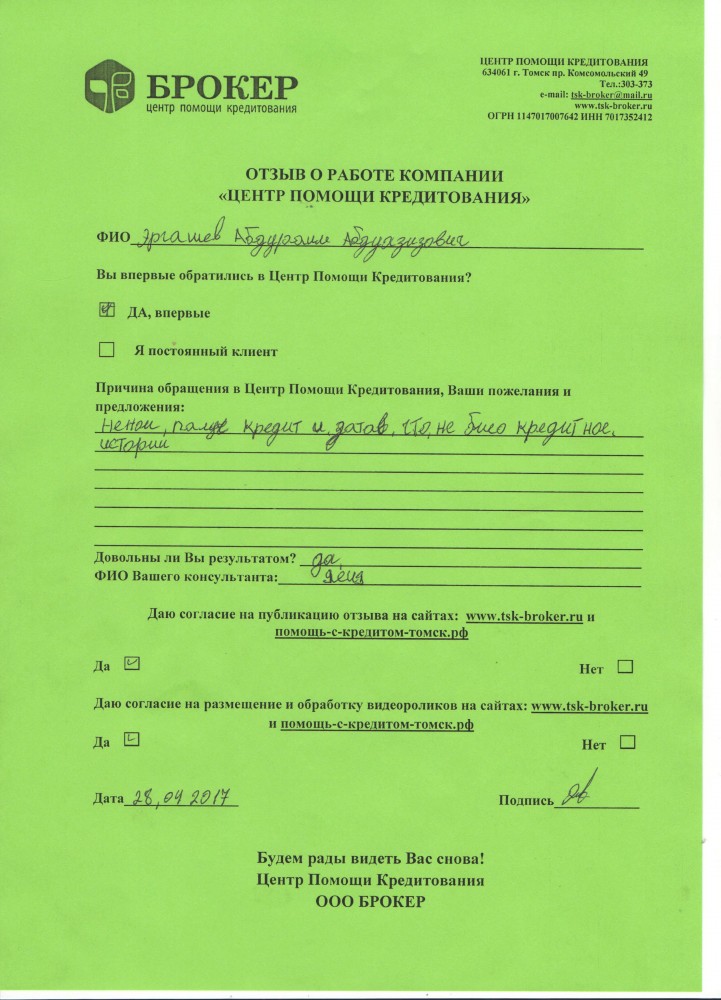 БРОКЕР
центр помощи кредитования
ЦЕНТР ПОМОЩИ КРЕДИТОВАНИЯ
634061 г. Томск пр. Комсомольский 49
Тел.:303-373
e-mail: tsk-broker@mail.ru
www.tsk-broker.ru
ОГРН 1147017007642 ИНН 7017352412
ОТЗЫВ О РАБОТЕ КОМПАНИИ
«ЦЕНТР ПОМОЩИ КРЕДИТОВАНИЯ»
ФИО Эргашев Абдураим Абдуазизович
Вы впервые обратились в Центр Помощи Кредитования?
ДА, впервые
Я постоянный клиент
Причина обращения в Центр Помощи Кредитования, Ваши пожелания и
предложения:
кредит и, что, не било кредитное.
истории
Довольны ли Вы результатом? да,
ФИО Вашего консультанта:
Даю согласие на публикацию отзыва на сайтах: www.tsk-broker.ru и
помощь-с-кредитом-томск.рф
Да Нет
Даю согласие на размещение и обработку видеороликов на сайтах: www.tsk-broker.ru
и помощь-с-кредитом-томск.рф
Да Нет
Дата 28,04 2017 Подпись
Будем рады видеть Вас снова!
Центр Помощи Кредитования
ООО БРОКЕР